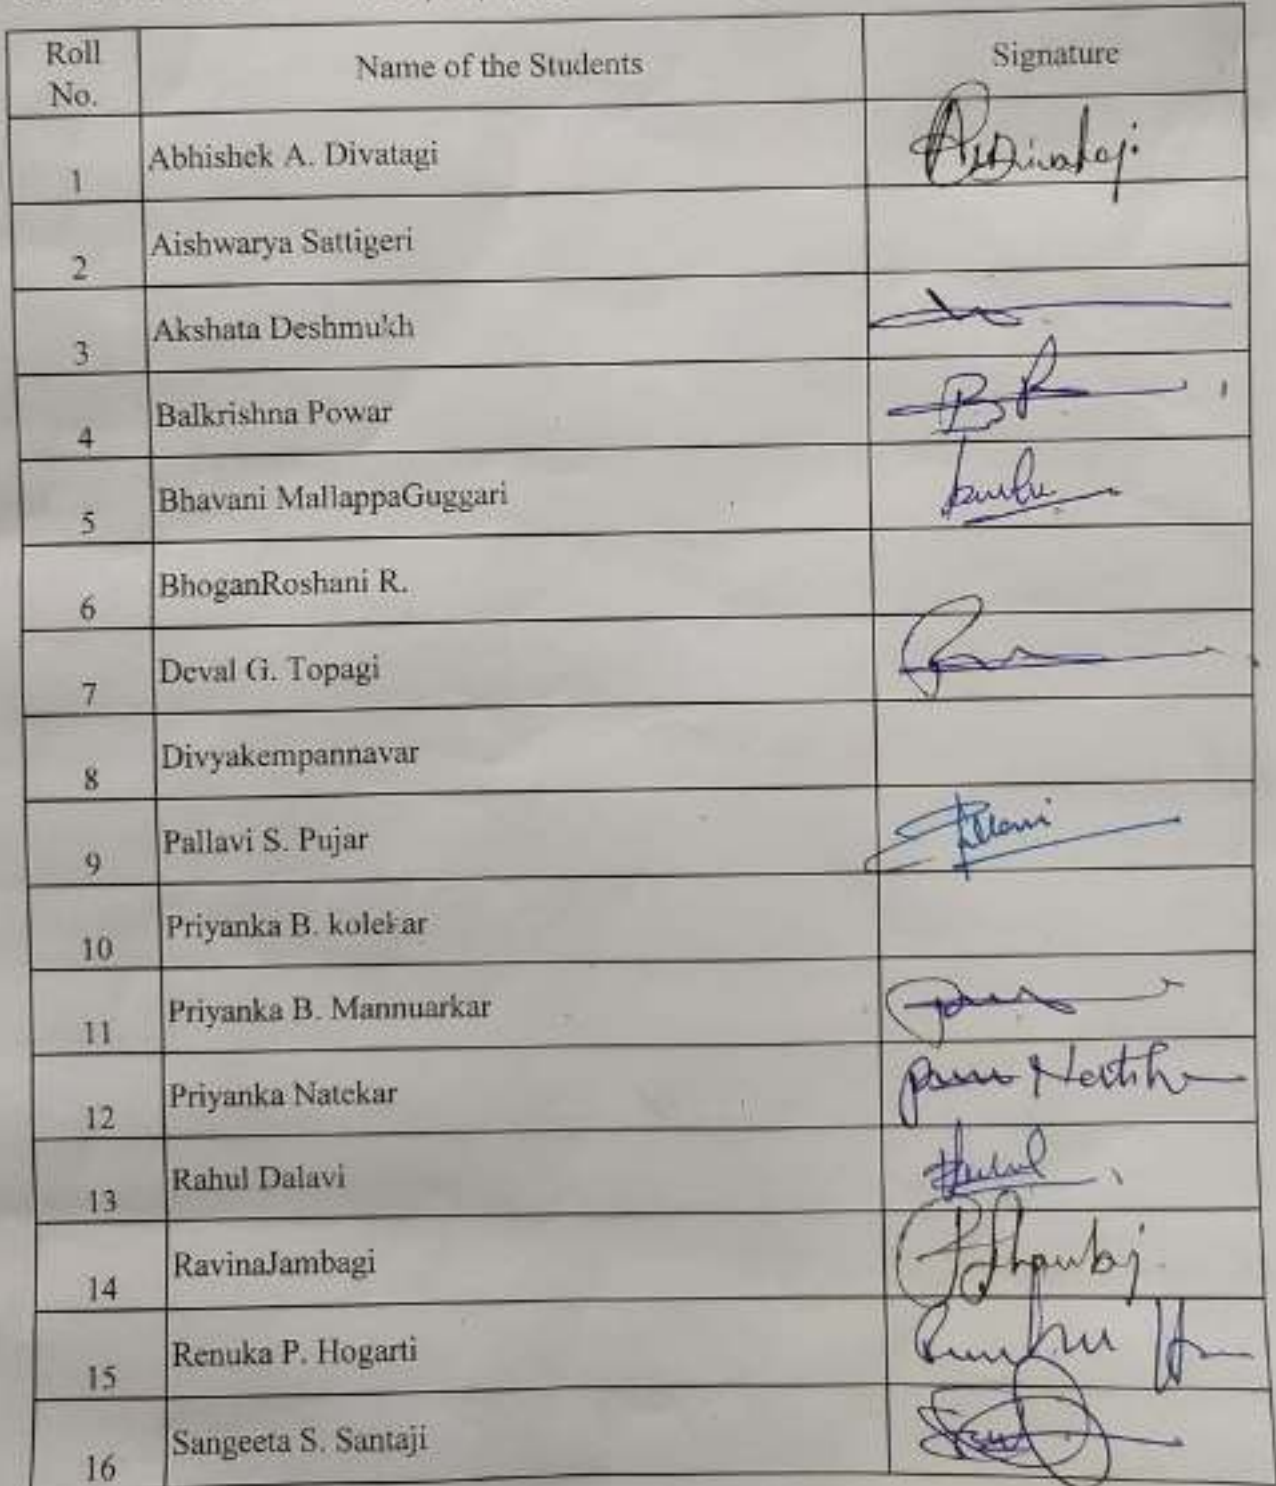 Roll No. Name of the Students Signature
1 Abhishek A. Divatagi
2 Aishwarya Sattigeri
3 Akshata Deshmukh
4 Balkrishna Powar
5 Bhavani MallappaGuggari
6 BhoganRoshani R.
7 Deval G. Topagi
8 Divyakempannavar
9 Pallavi S. Pujar
10 Priyanka B. kolekar
11 Priyanka B. Mannuarkar
12 Priyanka Natekar
13 Rahul Dalavi
14 RavinaJambagi
15 Renuka P. Hogarti
16 Sangeeta S. Santaji